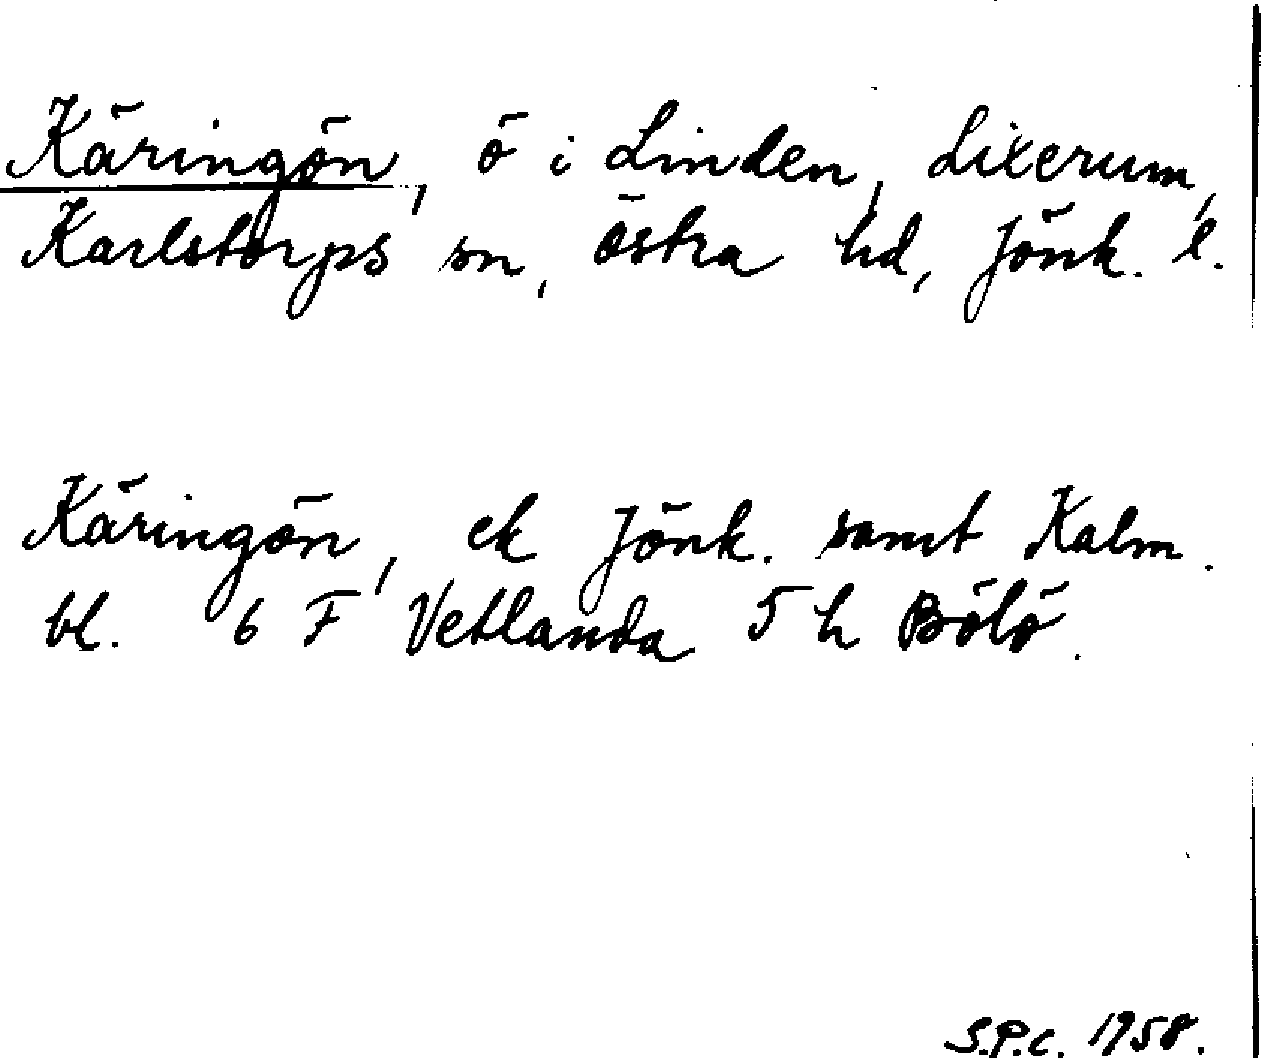 Käringön, ö i Linden, Lixerum,
Karlstorps sn, östra hd, Jönk. l.
Käringön, ek Jönk. samt Kalm.
bl. 6 F Vetlanda 5 h Bölö.
S.P.C. 1958.